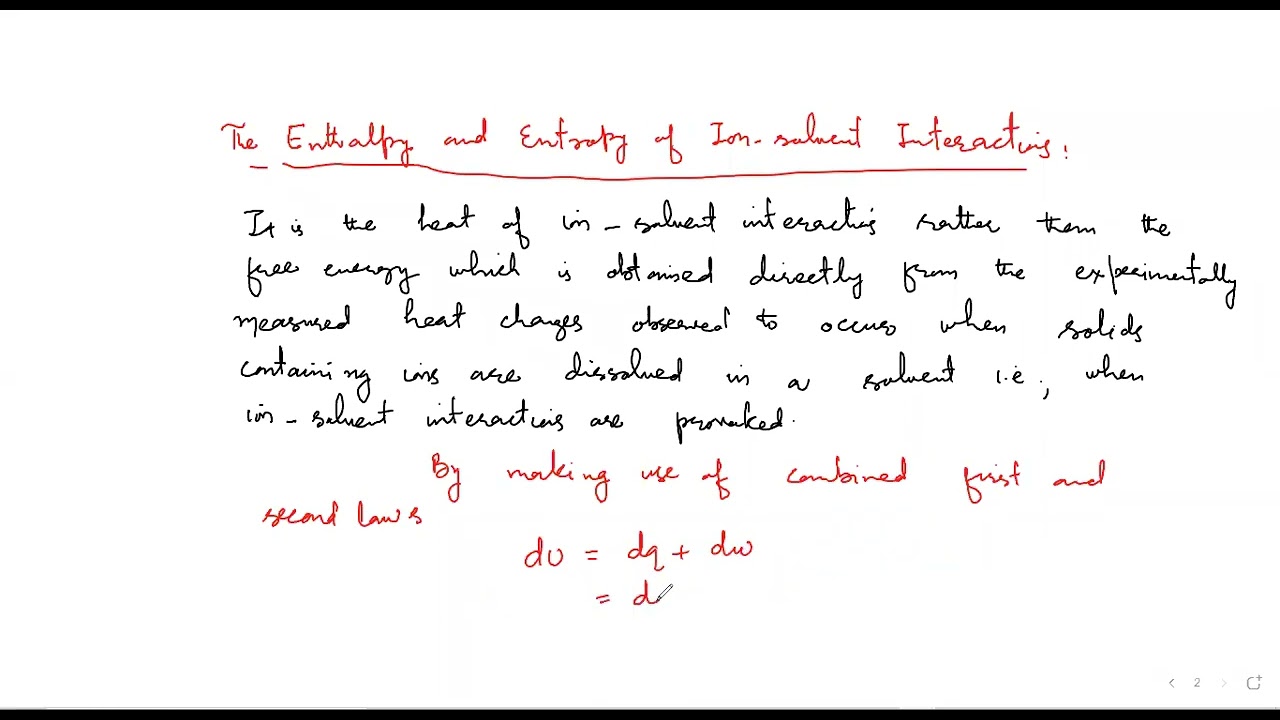 The Enthalpy and Entropy of Ion-solvent Interactions:
It is the heat of ion-solvent interactions rather than the
free energy which is obtained directly from the experimentally
measured heat changes observed to occur when solids
containing ions are dissolved in a solvent i.e., when
ion-solvent interactions are provoked.
By making use of combined first and
second laws
dU = dq + dw
= d
2